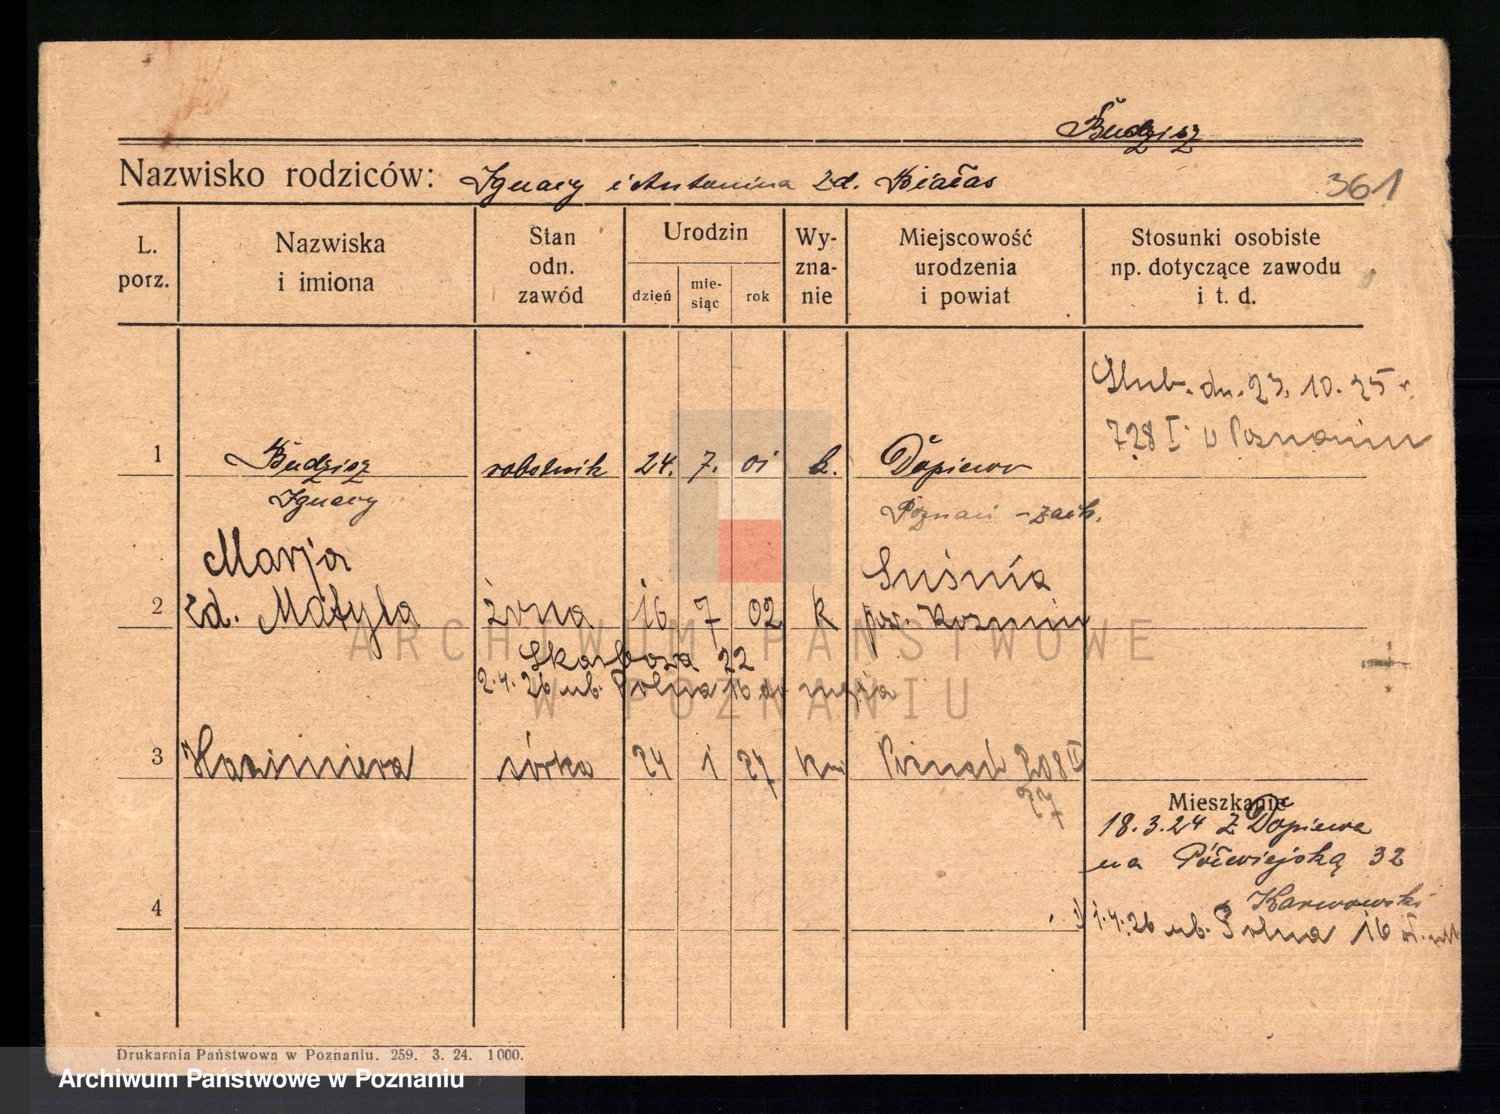 Budzisz
Nazwisko rodziców: Ignacy i Antonina zd. Białas
361
L. porz.
Nazwiska i imiona
Stan odn. zawód
Urodzin
dzień
mie-
siąc
rok
Wy-
zna-
nie
Miejscowość urodzenia i powiat
Stosunki osobiste np. dotyczące zawodu i t. d.
Ślub. dn. 23. 10. 25 r.
728 I w Poznaniu
1 Budzisz robotnik 24. 7. 01 k. Dopiewo
Ignacy Poznań - zach.
Marja
2 zd. Matyla żona 16 7 02 k Suśnia
pow. Kozmin
Skarbowa 22
2.4.26 ub. Polna 16
3 Kazimiera córka 24 1 27 Poznań 208 II
27
Mieszkanie
18.3.24 z Dopiewa
na Półwiejską 32
Karwowski
4
1.4.26 ub. Polna 16
Drukarnia Państwowa w Poznaniu. 259. 3. 24. 1000.
ARCHIWUM PAŃSTWOWE
W POZNANIU
Archiwum Państwowe w Poznaniu